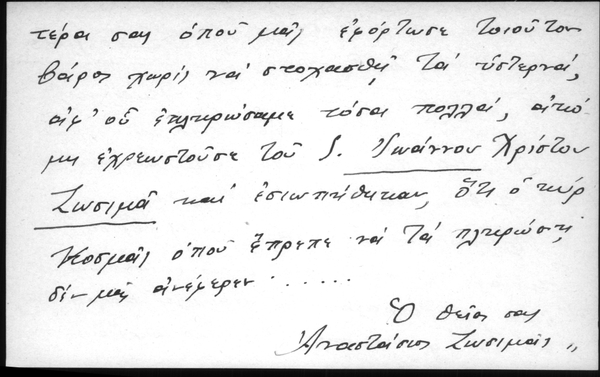 τέρα σας ὁποῦ μᾶς ἐφόρτωσε τοιοῦτον
βάρος χωρίς νά στοχασθῇ τά ὕστερνά,
ἀφ' οὗ ἐπληρώσαμε τόσα πολλά, ἀκό-
μη ἐχρεωστοῦσε τοῦ Σ. Ἰωάννου Χρίστου
Ζωσιμᾶ καί ἐσιωπήθηκαν, ὅτι ὁ κύρ
Κοσμᾶς ὁποῦ ἔπρεπε νά τά πληρώσῃ,
δέν μᾶς ἀνέφερεν . . . . .
Ὁ θεῖος σας
Ἀναστάσιος Ζωσιμᾶς "